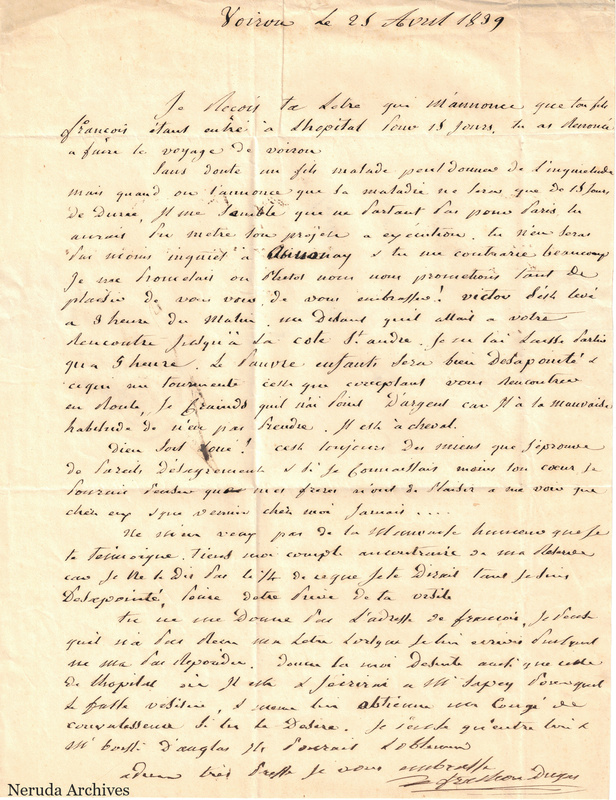 Voiron le 25 Avril 1839
Je Reçois ta Letre qui M'annonce que ton fils
françois étant entré à Lhopital pour 15 Jours, tu as Renoncé
a faire le voyage de voiron
Sans doute un fils malade peut donner de L'inquietude
mais quand on t'annonce que la maladie ne sera que de 15 Jours
de Durée, Il me Semble que ne Partant Pas pour Paris tu
aurais Du metre ton projet a exécution. tu n'en seras
Pas moins inquiet a Annonay & tu me contrarie beaucoup
Je me Prometais ou Plutot nous nous promettions tant de
plaisir de vous voir de vous embrasser! victor s'est levé
a 3 heure du Matin me Disant quil allait a votre
Rencontre Jusqu'à La cote St andre. Je ne l'ai Laissé Partir
qu'a 5 heure. Le Pauvre enfants sera bien Desapointé &
ce qui me tourmente cest que comptant vous Rencontrer
en Route, Je Crainds quil n'ai Point D'argent car Il à la mauvaise
habitude de n'en pas Prendre. Il est à cheval.
Dieu soit Loué! cest toujours Des miens que J'éprouve
de Pareils Désagrements & si Je Connaissais moins ton cœur Je
Pourais Penser que mes freres n'ont de Plaisir a me voir que
chez eux & que vennir chez moi Jamais ....
Ne m'en veux pas de la Mauvaise humeur que Je
te temoigne. tiens moi compte aucontraire de ma Retenue
car Je ne te Dis Pas le 1/4 de ce que Je te Dirait tant Je suis
Desapointé, Privé de ta visite
tu ne me Donne Pas L'adresse de françois, Je Pense
quil n'a Pas Recu ma Letre Lorsque Je lui ecrivis Puisquil
ne m'a Pas Repondu. donne la moi De suite ainsi que celle
de Lhopital où Il est & J'écrirai a Mr Sapey Pour quil
Le fasse visiter, & meme lui obtienne un Congé de
convalessense Si tu le Desire. Je Pense qu'entre lui &
Mr boissi D'anglas Ils Pourait L'obtenir
adieu très Pressé Je vous embrasse
Neruda Archives